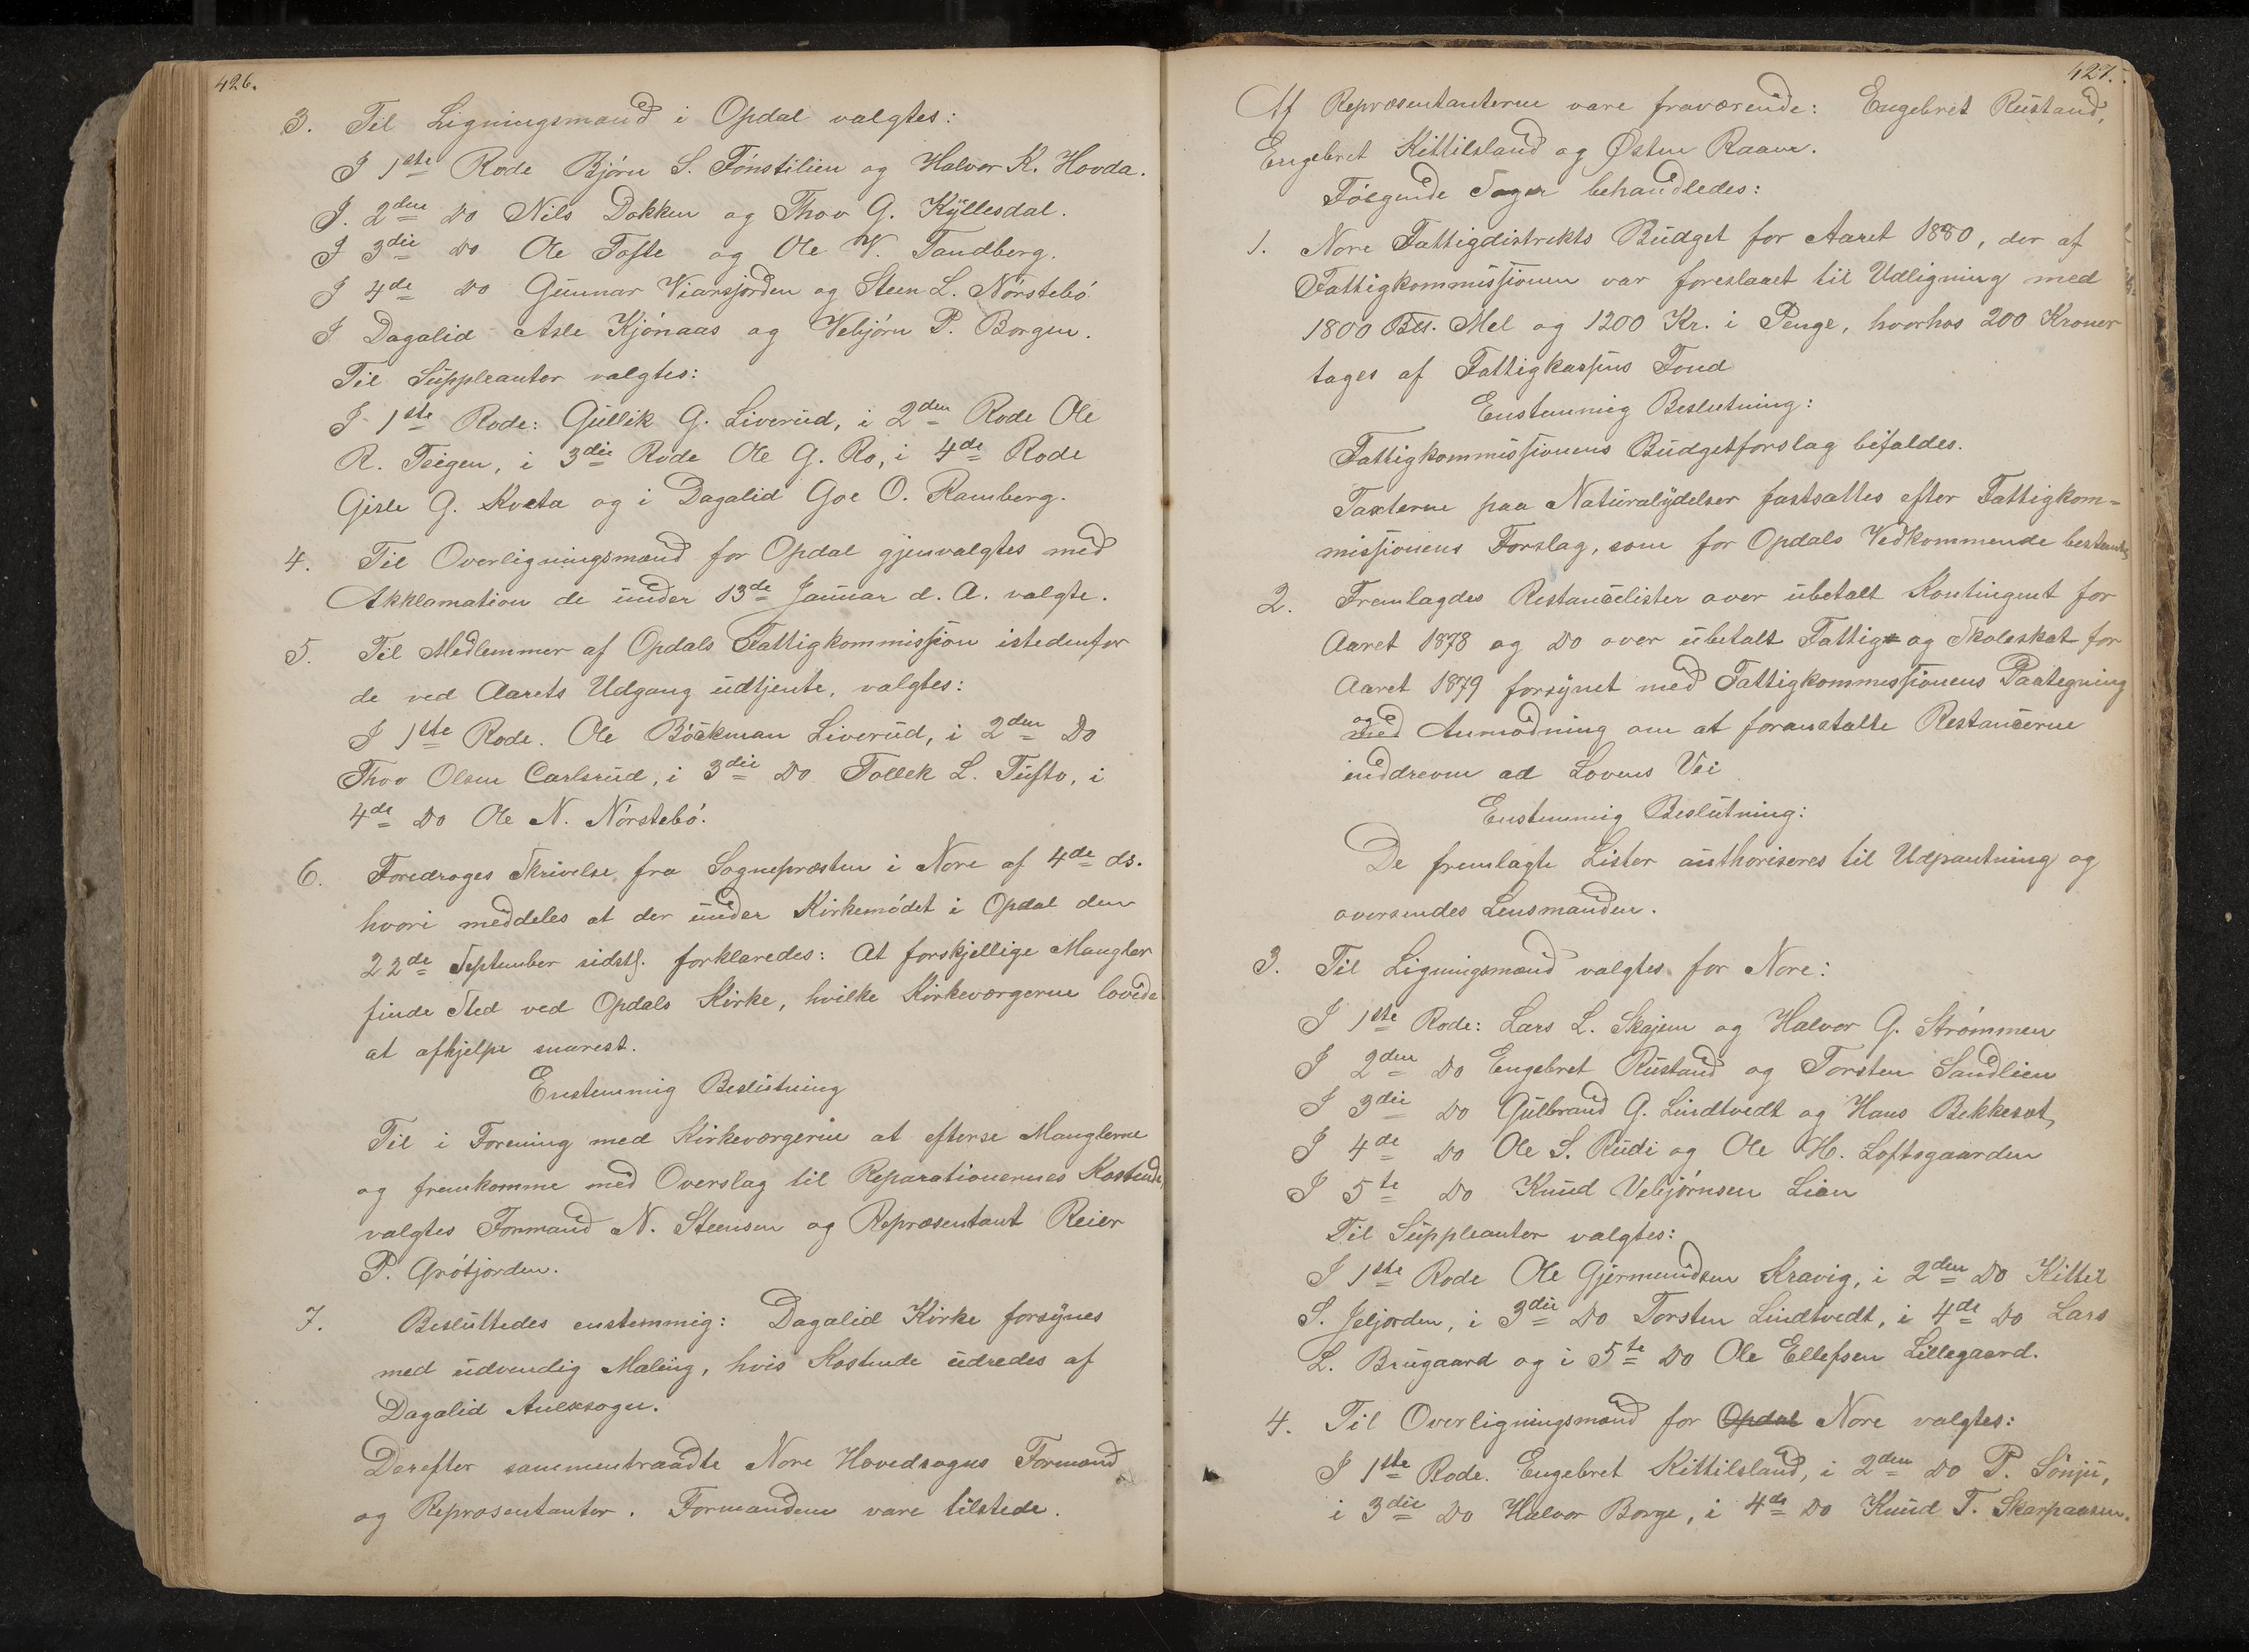 426.
3. Til Ligningsmænd i Opdal valgtes:
I 1ste Rode Bjørn S. Fønstilien og Halvor K. Hovda.
I. 2den Do Nils Dokken og Thov G. Kyllesdal.
I 3die Do Ole Tofte og Ole V. Tandberg.
I 4de Do Gunnar Viarsjorden og Steen L. Nørstebø.
I Dagalid Asle Kjønaas og Vebjørn P. Borgen.
Til Suppleanter valgtes:
I 1ste Rode: Gullik G. Liverud, i 2den Rode Ole
R. Teigen, i 3die Rode Ole G. Ro, i 4de Rode
Gisle G. Kvæta og i Dagalid Goe O. Ramberg.
4. Til Overligningsmænd for Opdal gjenvalgtes med
Akklamation de under 13de Januar d. A. valgte.
5. Til Medlemmer af Opdals Fattigkommission istedenfor
de ved Aarets Udgang udtjente, valgtes:
I 1ste Rode. Ole Bøckman Liverud, i 2den Do
Thov Olsen Carlsrud, i 3die Do Tollek L. Tufto, i
4de Do Ole N. Nørstebø.
6. Foredroges Skrivelse fra Sognepræsten i Nore af 4de ds.
hvori meddeles at der under Kirkemødet i Opdal den
22de September sidstl. forklaredes: At forskjellige Mangler
finde Sted ved Opdals Kirke, hvilke Kirkeværgerne lovede
at afhjelpe snarest.
Enstemmig Beslutning
Til i Forening med Kirkeværgerne at efterse Manglerne
og fremkomme med Overslag til Reparationernes Kostende,
valgtes Formand N. Steensen og Repræsentant Reier
P. Grøtjorden.
7. Besluttedes enstemmig: Dagalid Kirke forsynes
med udvendig Maling, hvis Kostende udredes af
Dagalid Anlexsogn.
Derefter sammentraadte Nore Hovedsogns Formænd
og Repræsentanter. Formændene vare tilstede.
427.
Af Repræsentanterne vare fraværende: Engebret Rustand,
Engebret Kittilsland og Østen Raaen.
Følgende Sager behandledes:
1. Nore Fattigdistrikts Budget for Aaret 1880, der af
Fattigkommissionen var foreslaaet til Udligning med
1800 Mel og 1200 Kr. i Penge, hvorhos 200 Kroner
tages af Fattigkassens Fond
Enstemmig Beslutning:
Fattigkommissionens Budgetforslag bifaldes.
Taxterne paa Naturalydelser fastsattes efter Fattigkom-
missionens Forslag, som for Opdals Vedkommende bestemtes
2. Fremlagdes Restancelister over ubetalt Kontingent for
Aaret 1878 og Do over ubetalt Fattig- og Skoleskat for
Aaret 1879 forsynet med Fattigkommissionens Paategning
og med Anmodning om at foranstalte Restancerne
inddrevne ad Lovens Vei
Enstemmig Beslutning:
De fremlagte Lister authoriseres til Udpantning og
oversendes Lensmanden.
3. Til Ligningsmænd valgtes for Nore:
I 1ste Rode: Lars L. Skajem og Halvor G. Strømmen
I 2den Do Engebret Rustand og Torsten Sandlien
I 3die Do Gulbrand G. Lindtvedt og Hans Bekkesæt,
I 4de Do Ole S. Rudi og Ole H. Loftsgaarden
I 5te Do Knud Vebjørnsen Lien
Til Suppleanter valgtes:
I 1ste Rode Ole Gjermundsen Kravig, i 2den Do Kittil
S. Jeljorden, i 3die Do Torsten Lindtvedt, i 4de Do Lars
L. Brugaard og i 5te Do Ole Ellefsen Lillegaard.
4. Til Overligningsmænd for Opdal Nore valgtes:
I 1ste Rode. Engebret Kittilsland, i 2den Do P. Sønju,
i 3die Do Halvor Borge, i 4de Do Knud T. Skarpaasen.